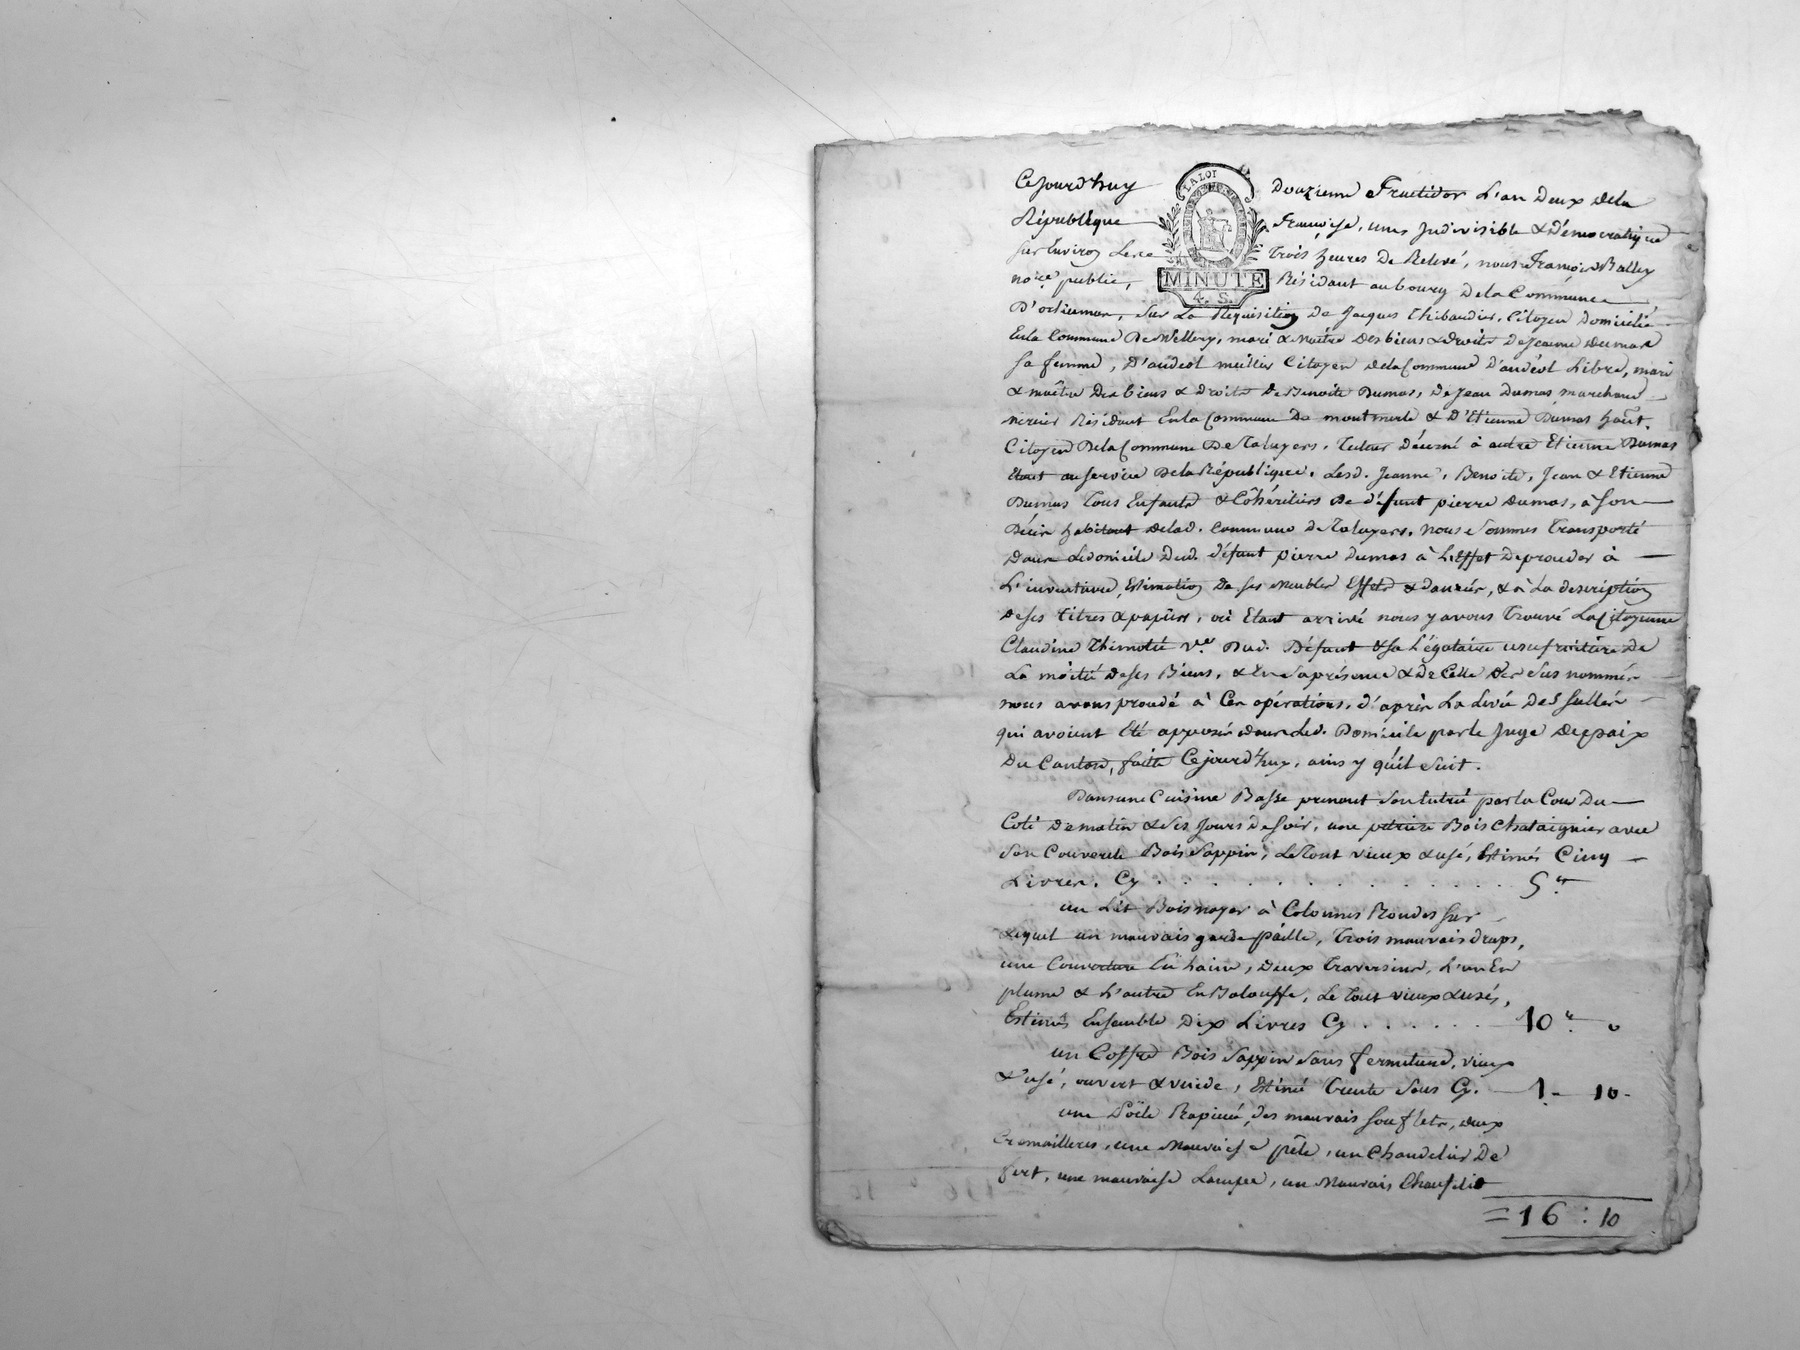 Cejourd'huy Douzieme Fructidor L'an Deux dela
République Françoise, une, Indivisible & Démocratique
sur Environ Les Trois heures De Relevé, nous François Balley
no.re public, Résidant au bourg De la Commune
D'orlienas, sur La Requisition De Jacques Thibaudier, Citoyen Domicilié
En la Commune De Millery, mari & maître Des biens & droits De Jeanne Dumas
sa femme, D'andéol Citoyen de la Commune D'andéol Libre, mari
& maître Des biens & droits De Benoite Dumas, De Jean Dumas marchand
mercier Résidant En la Commune De montmerle & D'Etienne Dumas
Citoyen De la Commune De Taluyers, Tuteur Décerné à autre Etienne Dumas
Etant au service De la République, Lesd. Jeanne, Benoite, Jean & Etienne
Dumas Tous Enfants & Cohéritiers De défunt pierre Dumas, à son
Décès habitant de lad. Commune de Taluyers, nous sommes Transporté
Dans Le domicile Dud. défunt pierre dumas à L'Effet De proceder à
L'inventaire, Estimation De ses Meubles Effets & danrées, & à La description
De ses titres & papiers, où Etant arrivé nous y avons Trouvé La Citoyenne
Claudine Thimotée v.ve Dud. Défunt & sa Légataire usufruitière De
La moitié De ses Biens, & En sa présence & De Celle Des sus nommés
nous avons procédé à Ces opérations, d'après La Levée Des scellés
qui avoient Eté apposés dans Led. Domicile par le Juge De paix
Du Canton, faite Cejourd'huy, ainsy qu'il suit.
Dans une Cuisine Basse prenant son Entrée par la Cour Du
Coté De matin & ses Jours De soir, une petriere Bois Chataignier avec
son Couvercle Bois sappin, Le Tout vieux & usé, Estimés Cinq
Livres. Cy . . . . . . . . . . . . 5.#
un Lit Bois noyer à Colonnes Rondes sur
Lequel un mauvais garde paille, Trois mauvais draps,
une Couverture En laine, Deux Traversins, L'un En
plume & L'autre En Balouffe, Le Tout vieux & usés,
Estimés Ensemble Dix Livres Cy . . . . . . 10.# 0
un Coffre Bois sappin sans fermeture, vieux
& usé, ouvert & vuide, Estimé Trente sous Cy. 1. 10.
une Poële Rapiecée, des mauvais souflets, deux
Cremailleres, une Mauvaise pêle, un Chandelier De
fert, une mauvaise Lampe, un Mauvais Chauflit
= 16 : 10
LA LOI
MINUTE
4. S.